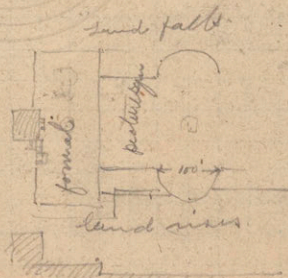 land falls
formal
picturesque
100'
land rises